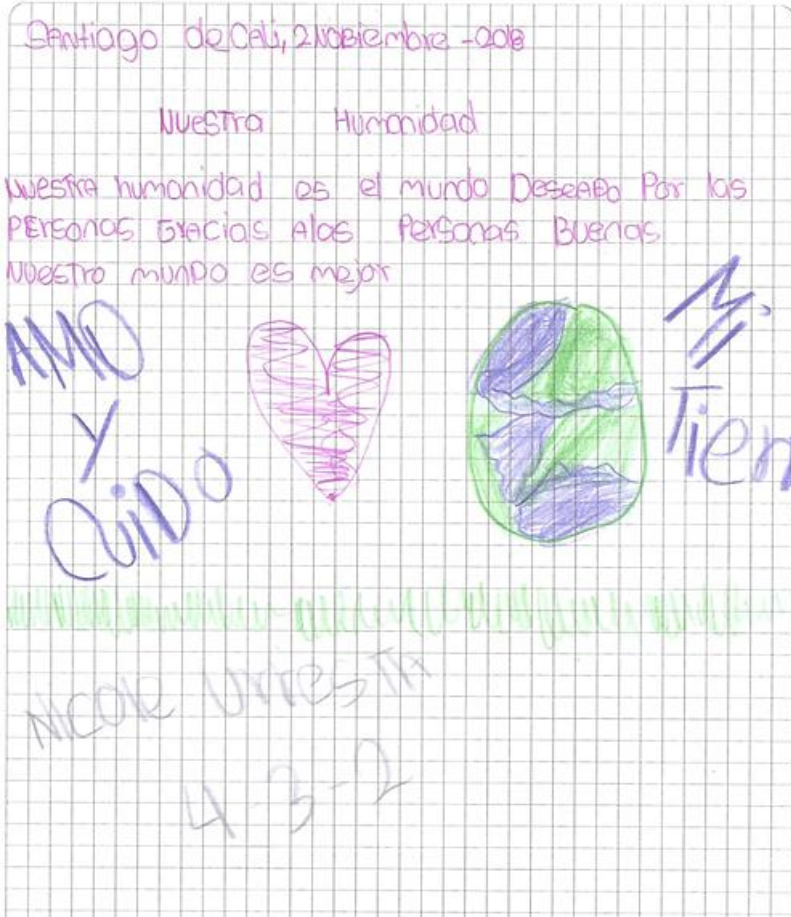 Santiago de Cali, 2 Nobiembre - 2018
Nuestra Humanidad
Nuestra humanidad es el mundo Deseado Por las
Personas Gracias Alas Personas Buenas
Nuestro mundo es mejor
AMO
Y
CUiDO
Mi
Tierr
Nicole Urresta
4-3-2